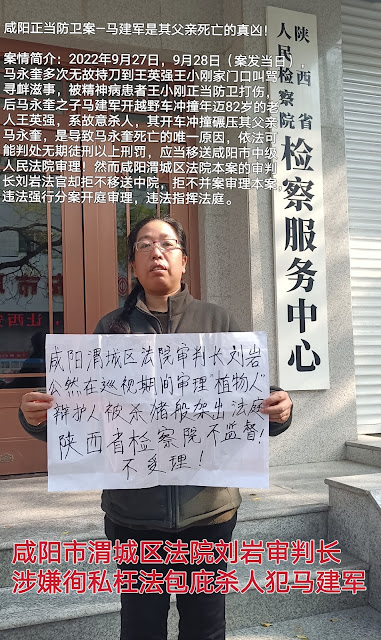 咸阳正当防卫案—马建军是其父亲死亡的真凶!
案情简介:2022年9月27日,9月28日(案发当日),
马永奎多次无故持刀到王英强王小刚家门口叫骂
寻衅滋事,被精神病患者王小刚正当防卫打伤,
后马永奎之子马建军开越野车冲撞年迈82岁的老
人王英强,系故意杀人,其开车冲撞碾压其父亲
马永奎,是导致马永奎死亡的唯一原因,依法可
能判处无期徒刑以上刑罚,应当移送咸阳市中级
人民法院审理!然而咸阳渭城区法院本案的审判
长刘岩法官却拒不移送中院,拒不并案审理本案,
违法强行分案开庭审理,违法指挥法庭。
陕西省
人民检察院
检察服务中心
咸阳渭城区法院审判长刘岩
公然在巡视期间审理"植物人"
辩护人被杀猪般架出法庭
陕西省检察院不监督!
不受理!
咸阳市渭城区法院刘岩审判长
涉嫌徇私枉法包庇杀人犯马建军